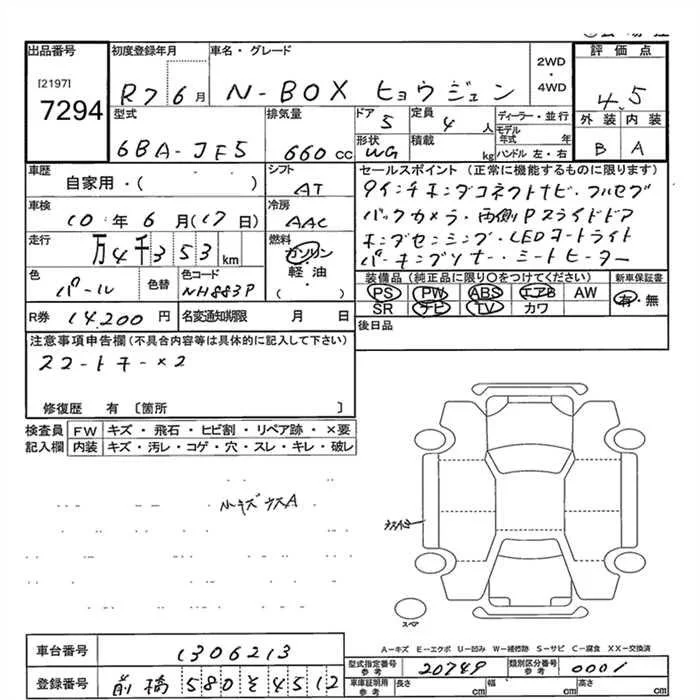 出品番号
[2197]
7294
初度登録年月
R7 6月
車名・グレード
N-BOX ヒョウジュン
2WD
・
4WD
評価点
4.5
外装 内装
B A
型式
6BA-JF5
排気量
660 cc
ドア
5
定員
4 人
形状
WG
積載
kg
ディーラー・並行
モデル年式 年
ハンドル 左・右
車歴
自家用・( )
シフト
AT
車検
10年6月(17日)
冷房
AAC
走行
万4千353km
燃料
ガソリン
軽油
( )
色
パール
色替
色コード
NH883P
R券 14,200円
名変通知期限 月 日
セールスポイント (正常に機能するものに限ります)
9インチホンダコネクトナビ・フルセグ
バックカメラ・両側Pスライドドア
ホンダセンシング・LEDオートライト
パーキングソナー・シートヒーター
装備品 (純正品に限り○をつけてください)
PS PW ABS エアB AW
SR ナビ TV カワ
新車保証書
有・無
後日品
注意事項申告欄 (不具合内容等は具体的に記入して下さい)
スマートキー×2
修復歴 有 〔箇所 〕
検査員記入欄
FW キズ・飛石・ヒビ割・リペア跡・×要
内装 キズ・汚レ・コゲ・穴・スレ・キレ・破レ
小キズウスA
ウスA2
スペア
A-キズ E-エクボ U-凹み W-補修跡 S-サビ C-腐食 XX-交換済
車台番号
1306213
登録番号
前橋 580 そ 4512
型式指定番号 参考
20749
類別区分番号 参考
0001
車庫証明用 参考
長さ cm
幅 cm
高さ cm